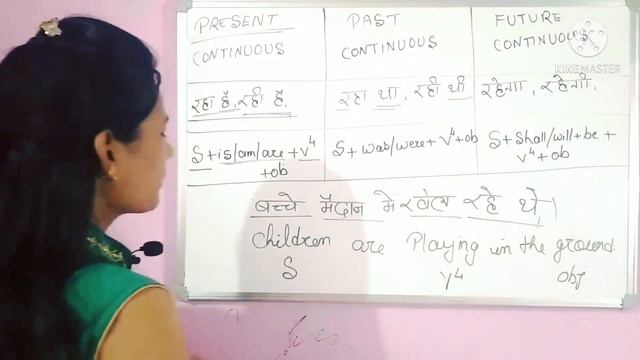 PRESENT CONTINUOUS
PAST CONTINUOUS
FUTURE CONTINUOUS
KINEMASTER
रहा है, रही है.
रहा था, रही थी
रहेगा, रहेगी.
S + is/am/are + V⁴ + ob
S + was/were + V⁴ + ob
S + Shall/will + be + V⁴ + ob
बच्चे मैदान में खेल रहे थे।
Children are Playing in the ground.
S V⁴ Obj